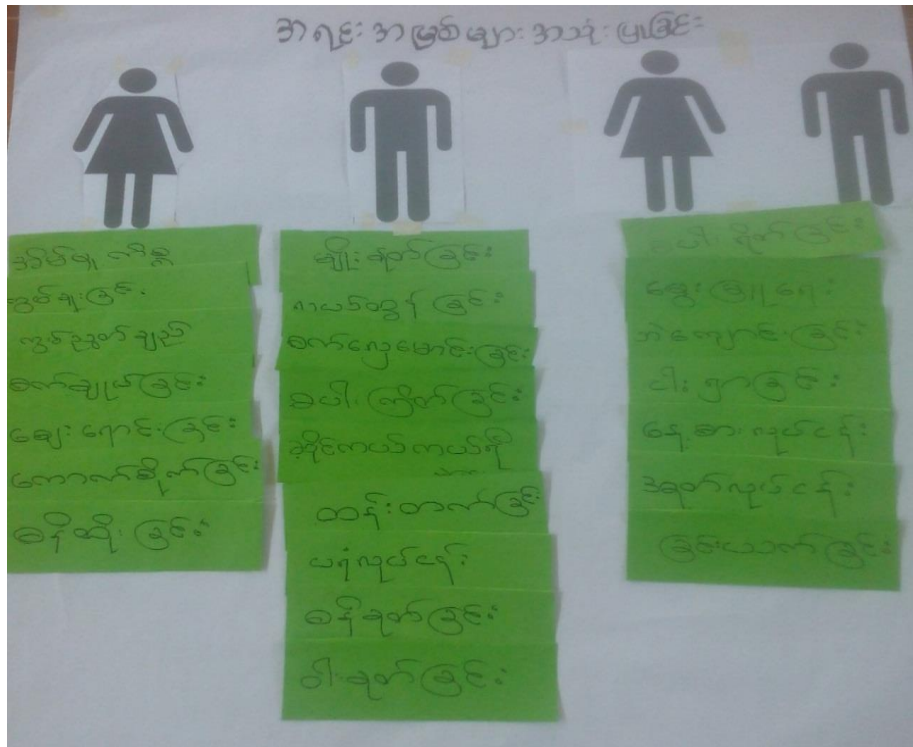 အရင်းအမြစ်များအသုံးပြုခြင်း
အိမ်မှုကိစ္စ
ချုံးခြင်း
ကွမ်းညှပ်ချည်
စက်ချုပ်ခြင်း
ဈေးရောင်းခြင်း
ကောက်စိုက်ခြင်း
စနိုထိုးခြင်း
မျိုးခုတ်ခြင်း
လယ်ထွန်ခြင်း
စက်လှေမောင်းခြင်း
စပါးကြိတ်ခြင်း
ဆိုင်ကယ်ကယ်ရီ
ထန်းတက်ခြင်း
ပရံလုပ်ငန်း
ဓနိခုတ်ခြင်း
ဝါးခုတ်ခြင်း
စပါးရိတ်ခြင်း
မွေးမြူရေး
ဘဲကျောင်းခြင်း
ငါးရှာခြင်း
နေ့စားလုပ်ငန်း
အရက်လုပ်ငန်း
ခြင်းယက်ခြင်း